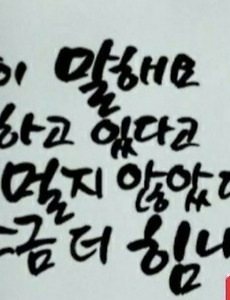 이 말해요
하고 있다고
멀지 않았다
금 더 힘